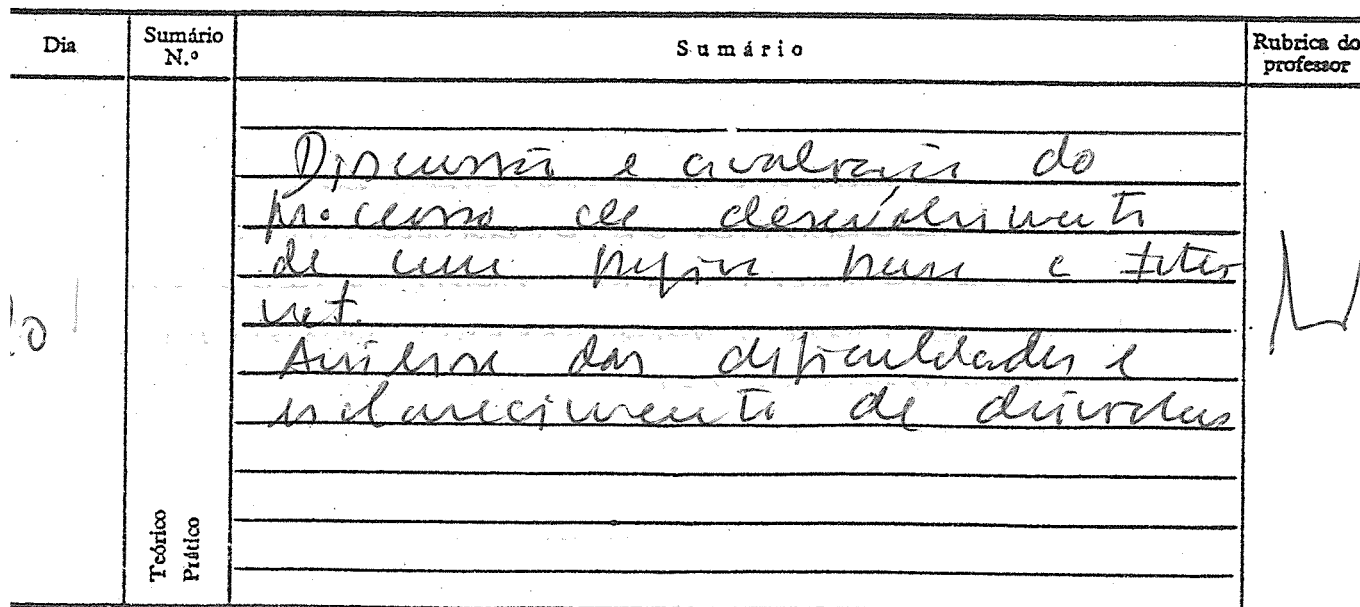 Dia
Sumário N.º
Sumário
Rubrica do professor
Discussão e avaliação do
processo de desenvolvimento
de uma página para a Inter
net.
Análise das dificuldades e
esclarecimento de dúvidas
Teórico
Prático